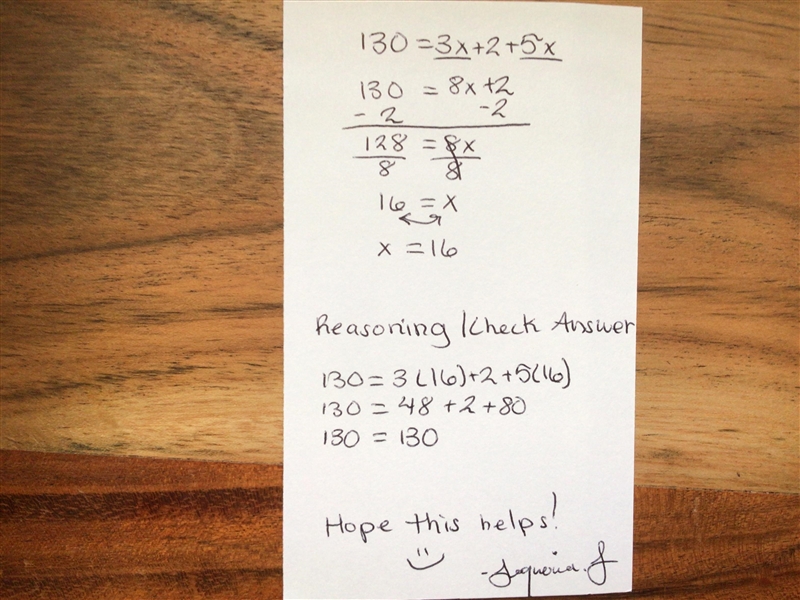 130 = 3x+2+5x
130 = 8x+2
- 2 -2
128 = 8x
8 8
16 = x
x = 16
Reasoning /Check Answer
130 = 3(16)+2+5(16)
130 = 48 +2+80
130 = 130
Hope this helps!